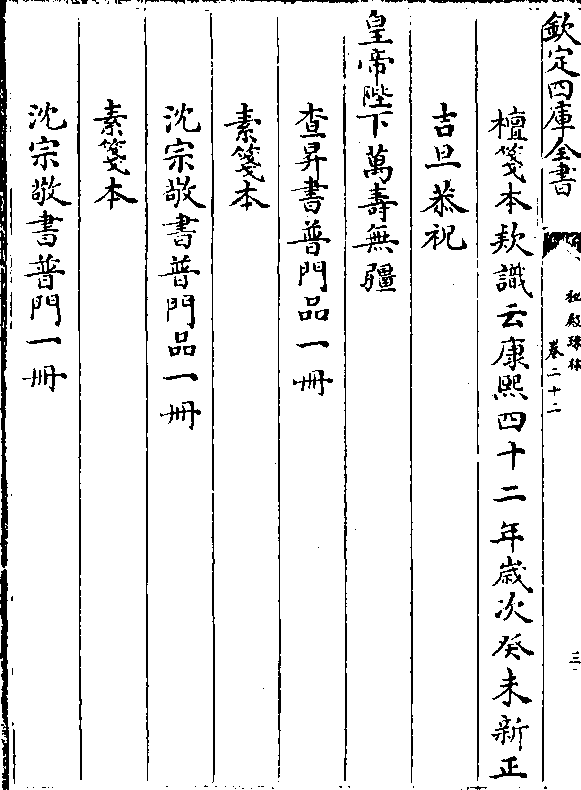 欽定四庫全書
秘殿珠林
卷二十二
三
檀箋本欵識云康熙四十二年歳次癸未新正
吉旦恭祝
皇帝陛下萬壽無疆
查昇書普門品一冊
素箋本
沈宗敬書普門品一冊
素箋本
沈宗敬書普門一冊